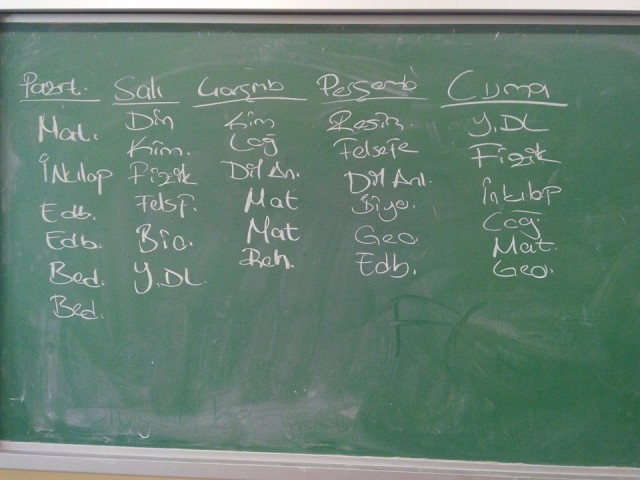 Pazrt. Salı Çarşmb Perşemb Cuma
Mat. Din Kim Resim Y.DL
İnkılap Kim. Coğ Felsefe Fizik
Edb. Fizik Dil An. Dil Anl. İnkılap
Edb. Felsf. Mat Biyo. Coğ.
Bed. Bio. Mat Geo. Mat.
Bed. Y.DL Reh. Edb. Geo.